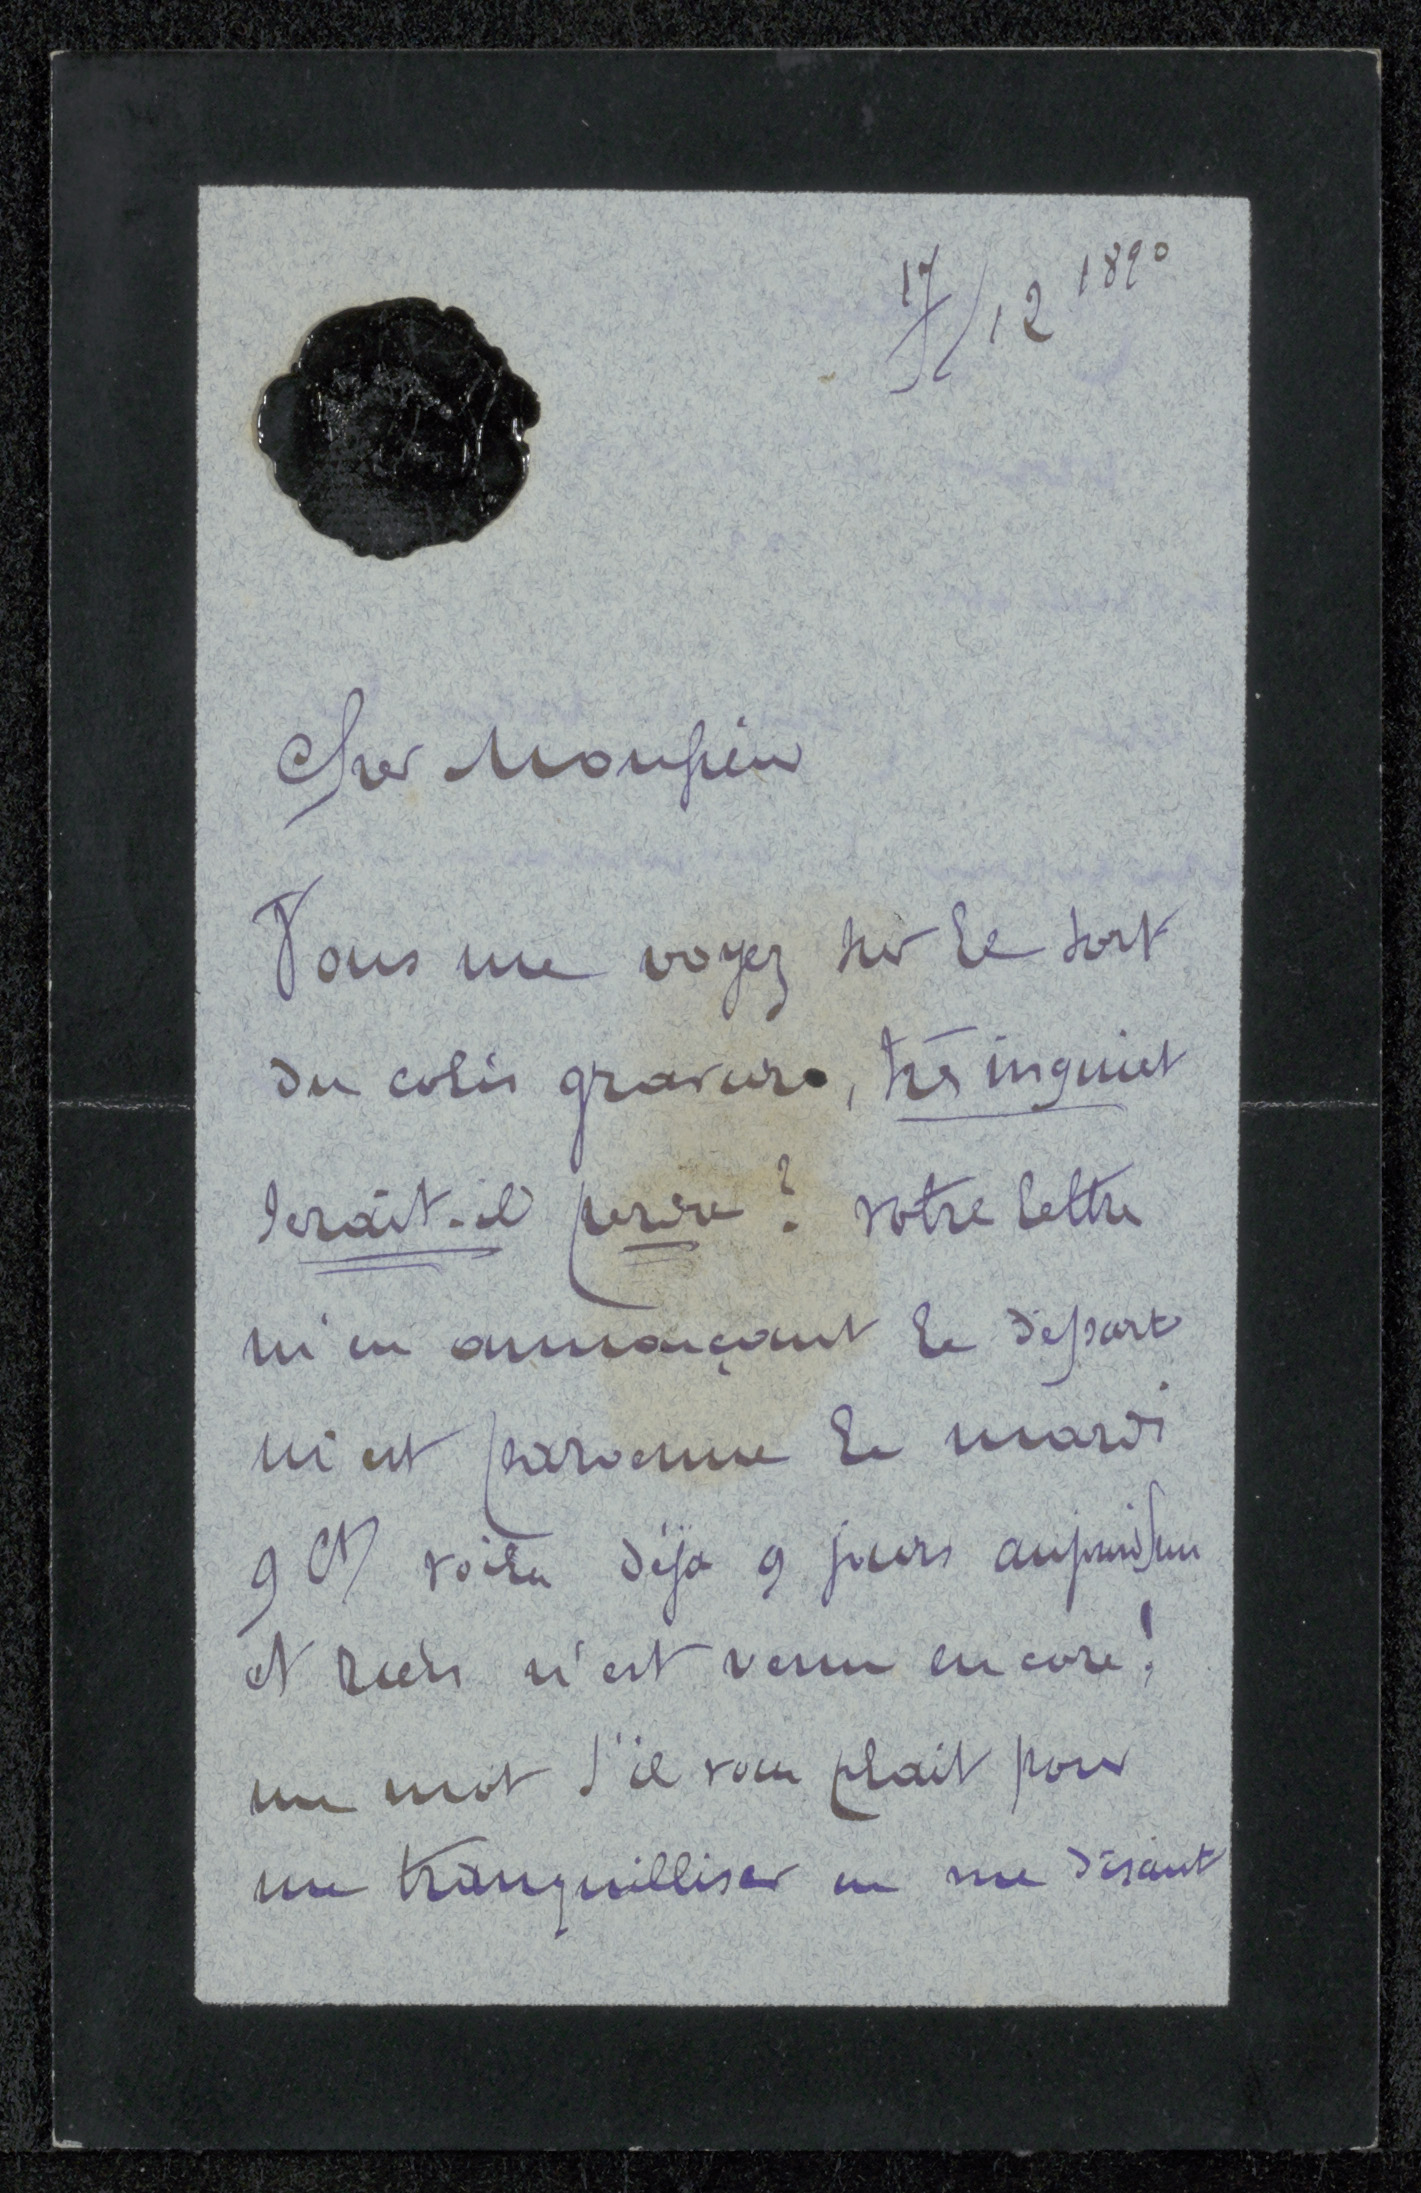 17/12 1890
Cher Monsieur
Vous me voyez sur le sort
du colis gravure, très inquiet
serait-il perdu? votre lettre
m'en annonçant le départ
m'est parvenue le mardi
9 Ct voila déja 9 jours aujourd'hui
et rien n'est venu encore!
un mot s'il vous plait pour
me tranquilliser en me disant